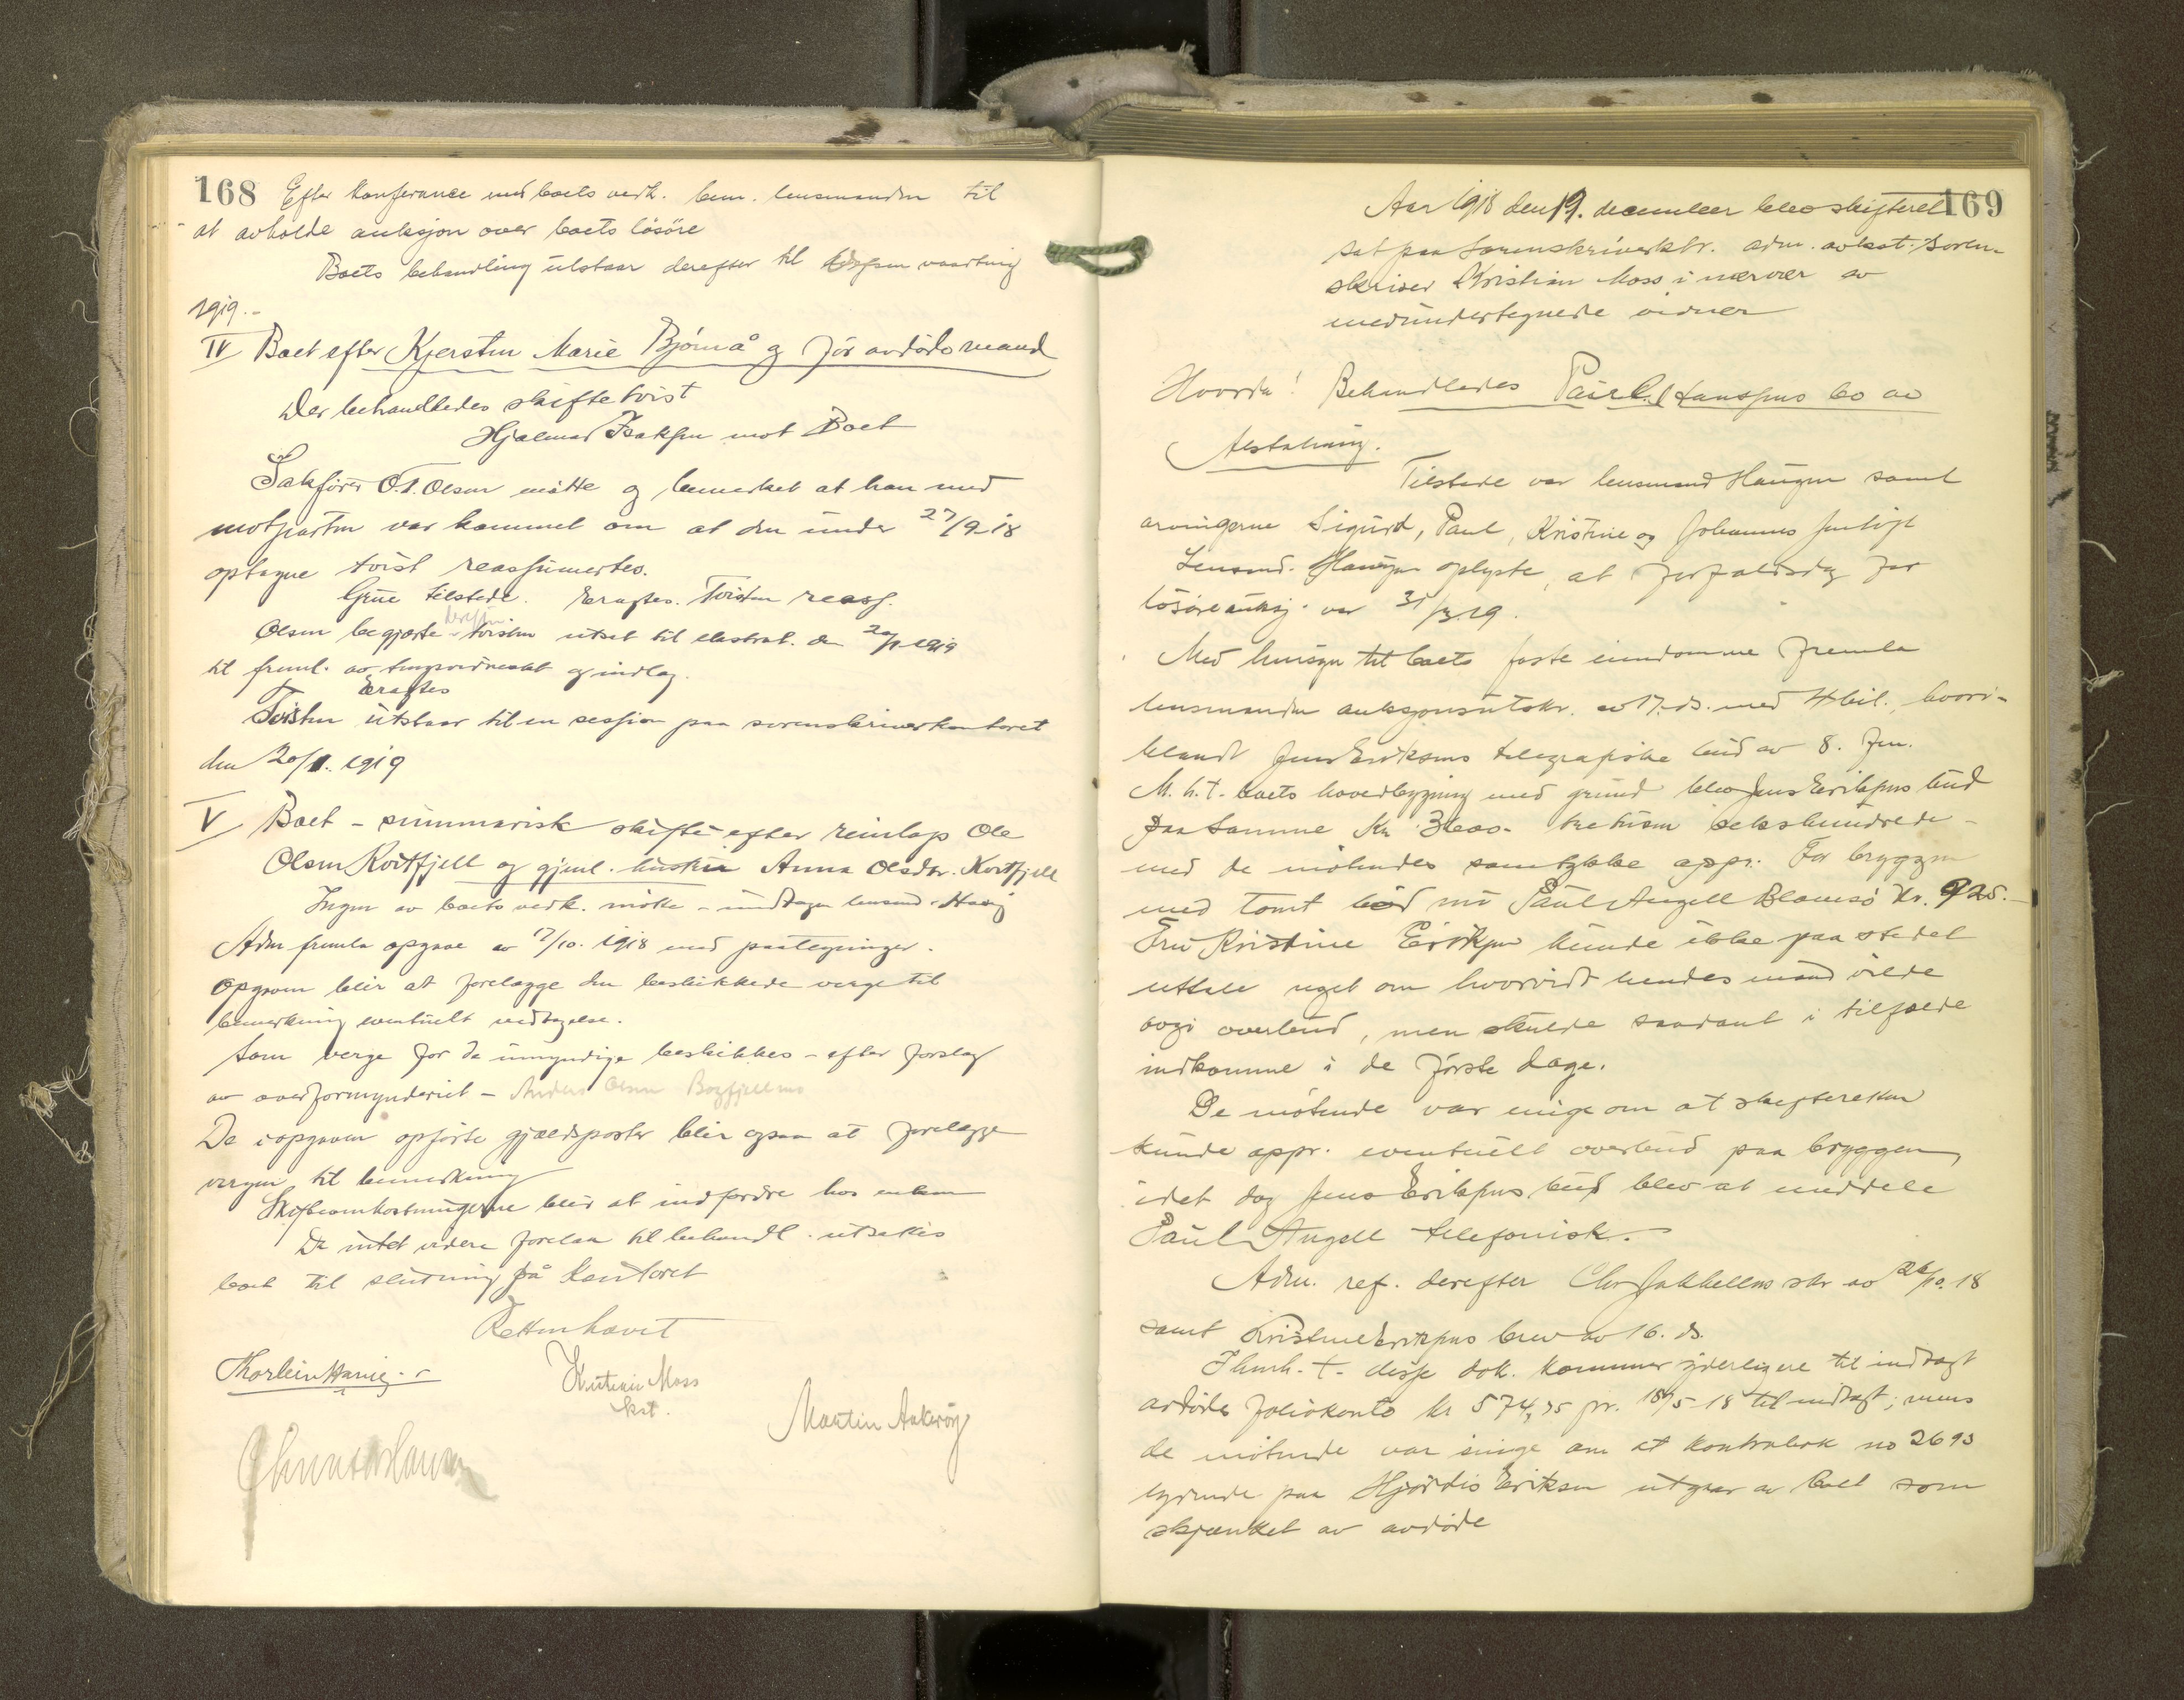 168 Efter konferance med boets vedk. bem. lensmanden til
at avholde auksjon over boets løsøre
Boets behandling utstaar derefter til vaarting
1919.-
IV Boet efter Kjerstin Marie Bjørnå og før avdøde mand
Der behandledes skiftetvist
Hjalmar Isaksen mot Boet
Sakfører O.T. Olsen møtte og bemerket at han med
motparten var kommet om at den under 27/9-18
optagne tvist reassumertes.
Grue tilstede. Eragtes. Tvisten reass.
Olsen begjærte tvisten utsat til ekstrat. den 20/1-1919
til freml. av og indlæg.
Eragtes
Tvisten utstaar til en session paa sorenskriverkontoret
den 20/1. 1919
V Boet - summarisk skifte efter reinlap Ole
Olsen Kortfjell og gjenl. hustru Anna Olsdtr. Kortfjell
Ingen av boets vedk. møtte - undtagen lensmd. Havig
Adm fremla opgave av 17/10. 1918 med paategninger.
Opgaven blir at forelægge den beskikkede verge til
bemerkning eventuelt vedtagelse.
Som verge for de umyndige beskikkes - efter forslag
av overformynderiet - Anders Olsen
De i opgaven opførte gjældsposter blir ogsaa at forelægge
vergen til bemerkning
Skifteomkostningerne blir at indfordre hos enken
Da intet videre forelaa til behandl. utsattes
boet til slutning på kontoret
Retten hævet
Thorleiv Havig
Kristian Moss
kst.
Martin Ankerøy
169
Aar 1918 den 19. december blev skifteret
sat paa sorenskriverktr. adm. av kst. soren-
skriver Kristian Moss i nærvær av
medundertegnede vidner
Hvorda! Behandledes Paul Hanssens bo av
Alstahaug.
Tilstede var lensmand Haugen samt
arvingerne Sigurd, Paul, Kristine og Johannes
Lensmd. Haugen oplyste, at forfaldsdag for
løsøreauksj. var 31/3.19.
Med hensyn til boets faste eiendomme fremla
lensmanden auksjonsutskr. av 17. ds. med 4 bil., hvori-
blandt Jens Eriksens telegrafiske bud av 8. Jan.
M. h. t. boets hovedbygning med grund blev Jens Eriksens bud
paa samme Kr 3600- tretusen sekshundrede -
med de møtendes samtykke appr. For bryggen
med tomt bød nu Paul Angell Blomsø Kr. 925.-
Fru Kristine Eriksen kunde ikke paa stedet
uttale noget om hvorvidt hendes mand vilde
avgi overbud, men skulde saadant i tilfælde
indkomme i de første dage.
De møtende var enige om at skifteretten
kunde appr. eventuelt overbud paa bryggen,
idet dog Jens Eriksens bud blev at meddele
Paul Angell telefonisk.
Adm. ref. derefter Chr. Jakhellns skr av 26/10. 18
samt Kristine Eriksens brev av 16. ds.
I henh. t. disse dok. kommer yderligere til indtægt
avdødes foliokonto kr 574,35 pr. 18/5-18 til indtægt; mens
de møtende var enige om at kontrabok no 2693
lydende paa Hjørdis Eriksen utgaar av boet som
skjænket av avdøde